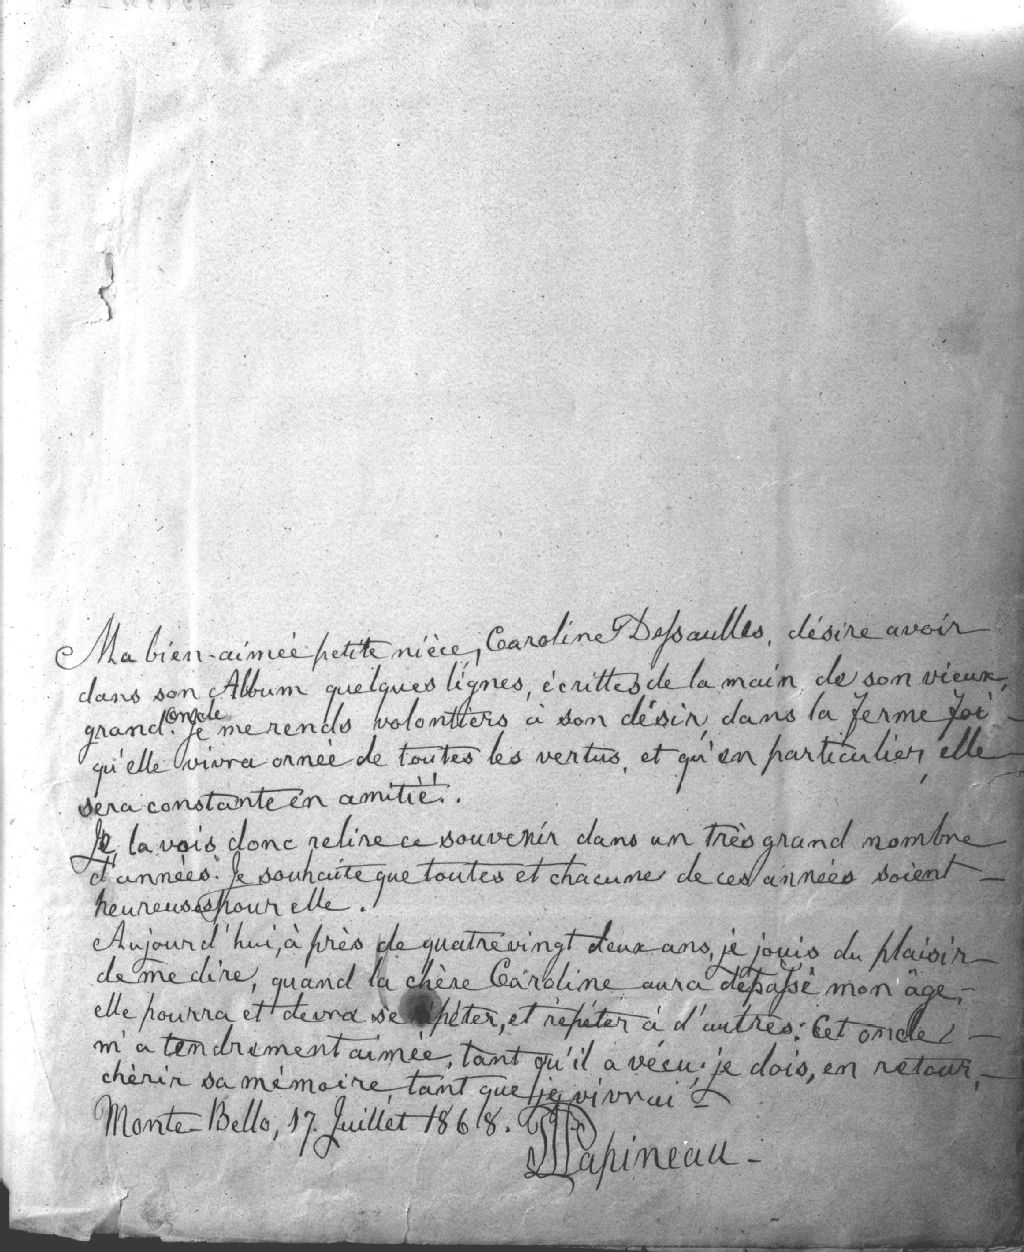 Ma bien-aimée petite nièce, Caroline Dessaulles, désire avoir
dans son Album quelques lignes, écrittes de la main de son vieux,
grand. Oncle Je me rends volontiers à son désir, dans la ferme foi
qu'elle vivra ornée de toutes les vertus, et qu'en particulier, elle
sera constante en amitié.
Je la vois donc relire ce souvenir dans un très grand nombre
d'années. Je souhaite que toutes et chacune de ces années soient
heureuses pour elle.
Aujourd'hui, à près de quatrevingt deux ans, je jouis du plaisir
de me dire, quand la chère Caroline aura dépassé mon âge,
elle pourra et devra se répéter, et répéter à d'autres: Cet oncle
m'a tendrement aimée, tant qu'il a vécu; je dois, en retour,
chérir sa mémoire, tant que je vivrai
Monte-Bello, 17. Juillet 1868.
Papineau